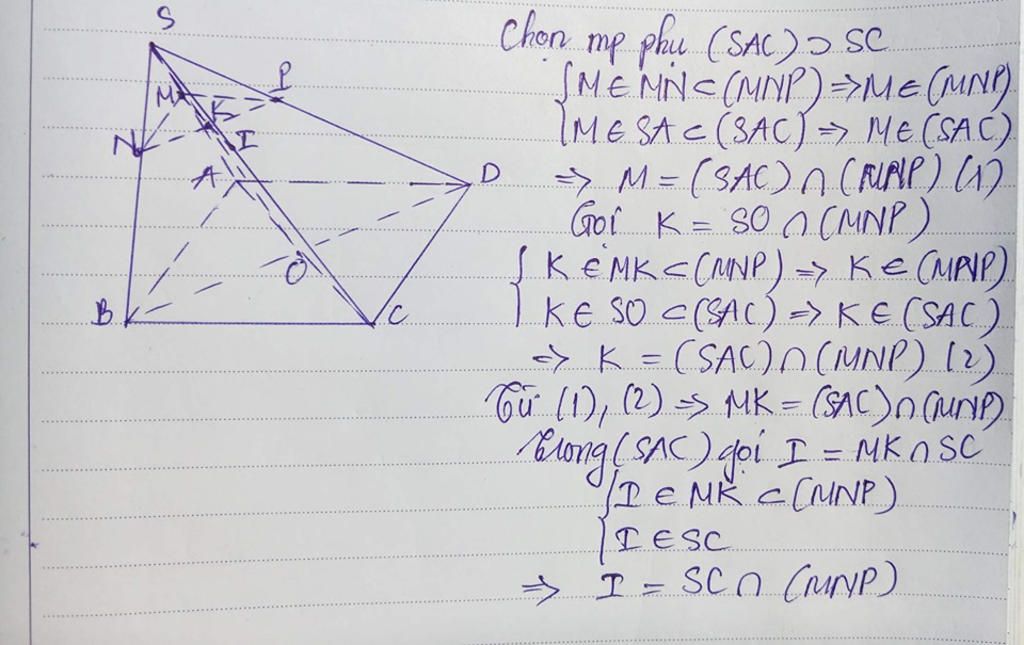 S
P
M
K
N
I
A
D
O
B
C
Chọn mp phụ (SAC) ⊃ SC
{M ∈ MN ⊂ (MNP) => M ∈ (MNP)
{M ∈ SA ⊂ (SAC) => M ∈ (SAC)
=> M = (SAC) ∩ (MNP) (1)
Gọi K = SO ∩ (MNP)
{K ∈ MK ⊂ (MNP) => K ∈ (MNP)
{K ∈ SO ⊂ (SAC) => K ∈ (SAC)
=> K = (SAC) ∩ (MNP) (2)
Từ (1), (2) => MK = (SAC) ∩ (MNP)
Trong (SAC) gọi I = MK ∩ SC
{I ∈ MK ⊂ (MNP)
{I ∈ SC
=> I = SC ∩ (MNP)